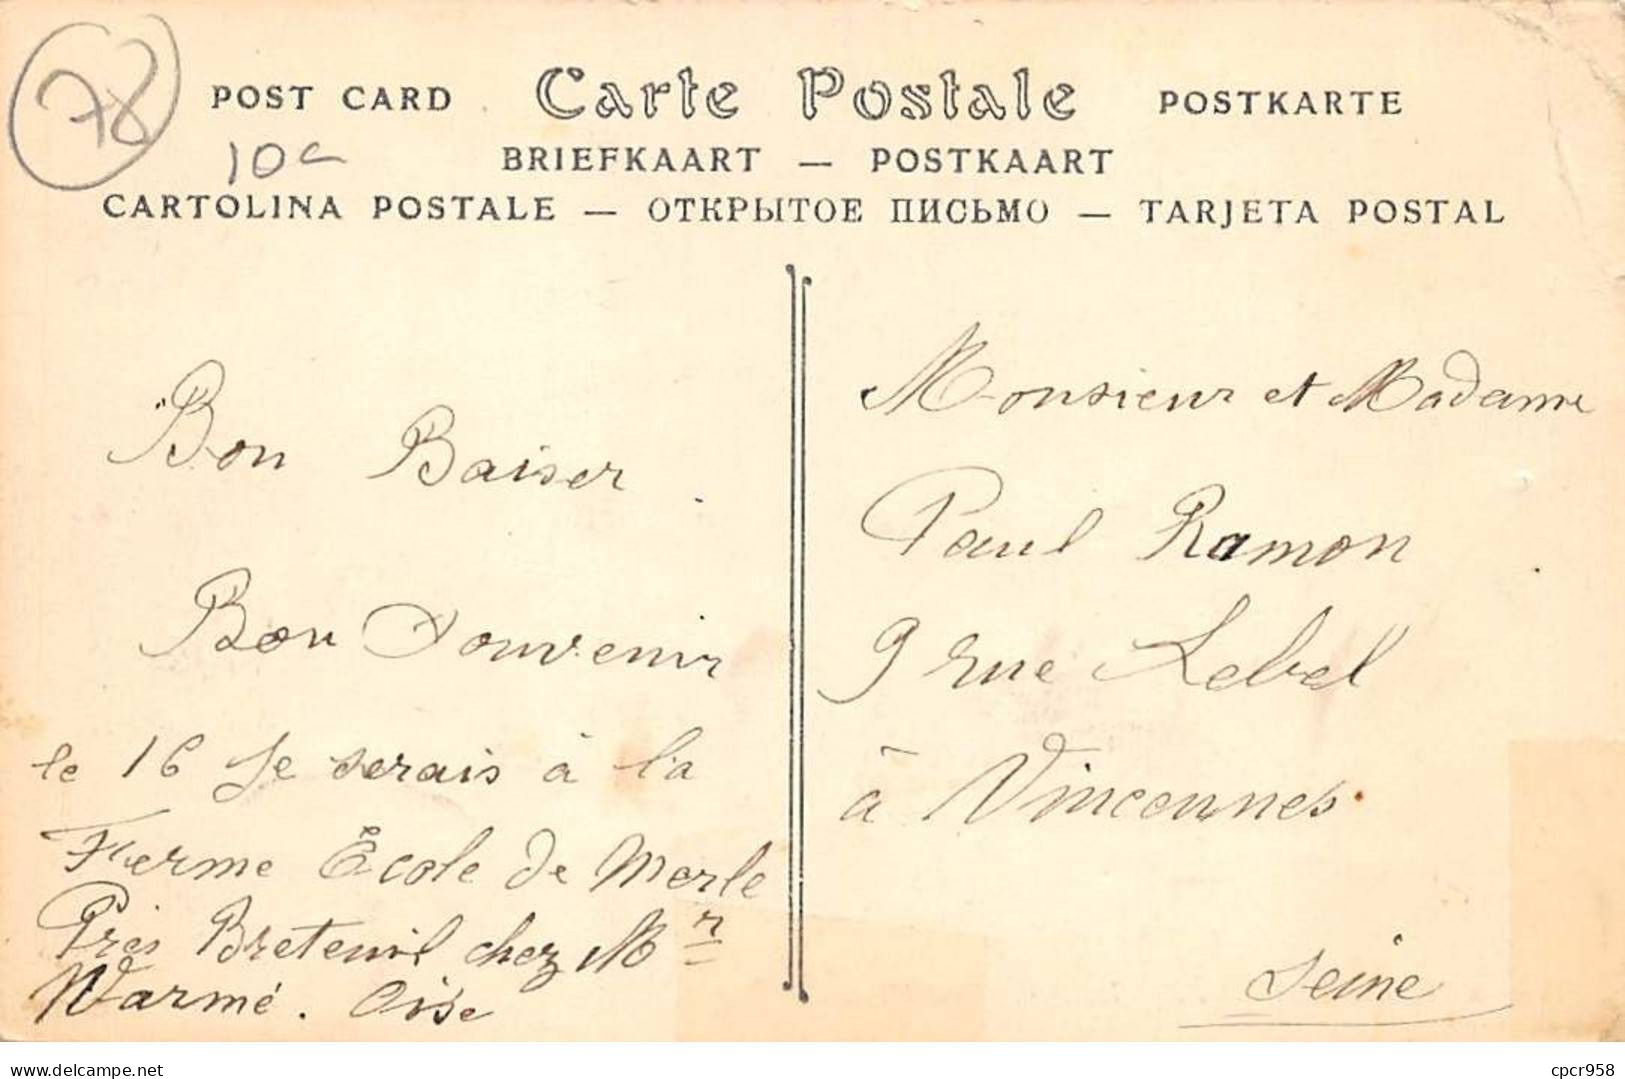 78
POST CARD Carte Postale POSTKARTE
10c
BRIEFKAART — POSTKAART
CARTOLINA POSTALE — ОТКРЫТОЕ ПИСЬМО — TARJETA POSTAL
Bon Baiser
Bon Souvenir
le 16 Je serais à la
Ferme École de Merle
Près Breteuil chez Mr
Warmé. Oise
Monsieur et Madame
Paul Ramon
9 rue Lebel
à Vincennes
Seine
www.delcampe.net
cpcr958